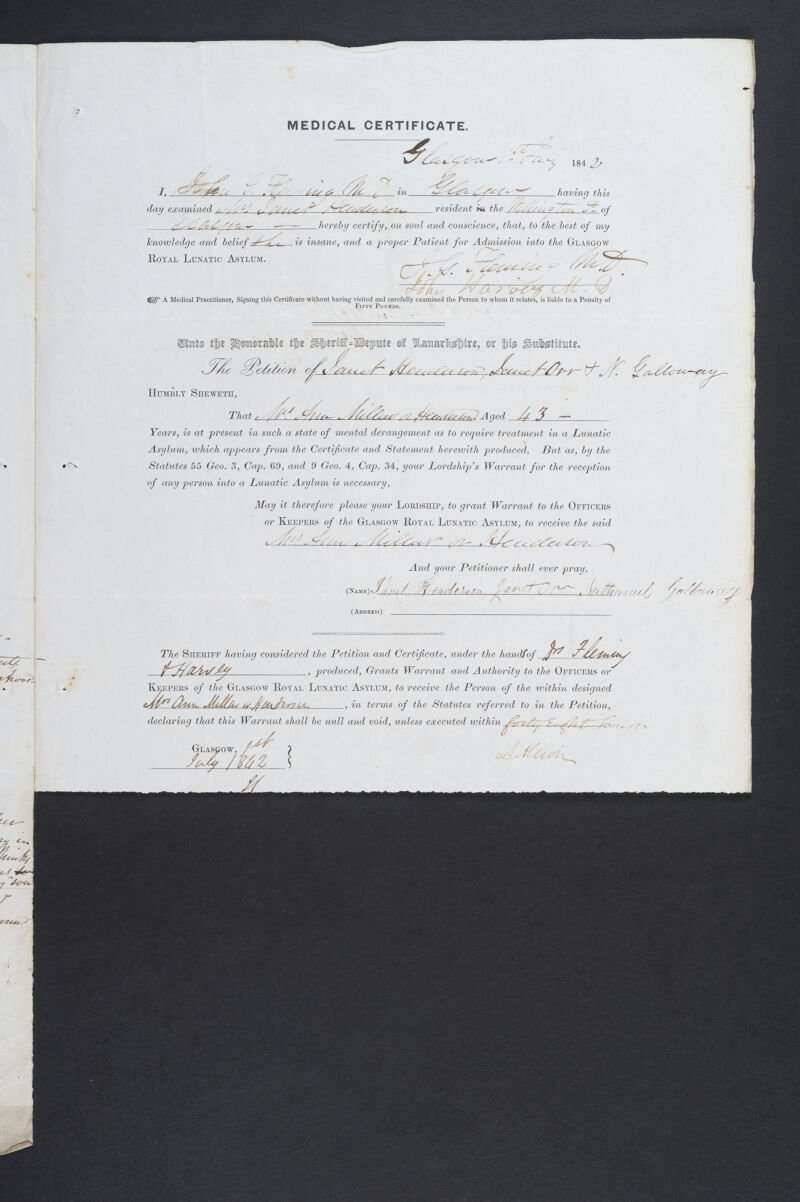 MEDICAL CERTIFICATE.
Glasgow 1st July 1842
I, John G. Fleming M.D. in Glasgow having this
day examined Mrs Janet Henderson resident in the Wellington St. of
Glasgow hereby certify, on soul and conscience, that, to the best of my
knowledge and belief She is insane, and a proper Patient for Admission into the GLASGOW
ROYAL LUNATIC ASYLUM.
J. G. Fleming M.D.
John Harvey M.D.
☞ A Medical Practitioner, Signing this Certificate without having visited and carefully examined the Person to whom it relates, is liable to a Penalty of
FIFTY POUNDS.
Unto the Honorable the Sheriff-Depute of Lanarkshire, or his Substitute.
The Petition of Janet Henderson, Janet Orr & N. Galloway
HUMBLY SHEWETH,
That Mrs Ann Millar or Henderson Aged 43 –
Years, is at present in such a state of mental derangement as to require treatment in a Lunatic
Asylum, which appears from the Certificate and Statement herewith produced. But as, by the
Statutes 55 Geo. 3, Cap. 69, and 9 Geo. 4, Cap. 34, your Lordship's Warrant for the reception
of any person into a Lunatic Asylum is necessary,
May it therefore please your LORDSHIP, to grant Warrant to the OFFICERS
or KEEPERS of the GLASGOW ROYAL LUNATIC ASYLUM, to receive the said
Mrs Ann Millar or Henderson
And your Petitioner shall ever pray.
(NAME) Janet Henderson Janet Orr Nathaniel Galloway
(ADDRESS)
The SHERIFF having considered the Petition and Certificate, under the hands of Drs Fleming
& Harvey, produced, Grants Warrant and Authority to the OFFICERS or
KEEPERS of the GLASGOW ROYAL LUNATIC ASYLUM, to receive the Person of the within designed
Mrs Ann Millar or Henderson, in terms of the Statutes referred to in the Petition,
declaring that this Warrant shall be null and void, unless executed within forty Eight hours.
GLASGOW, 1st
July 1842